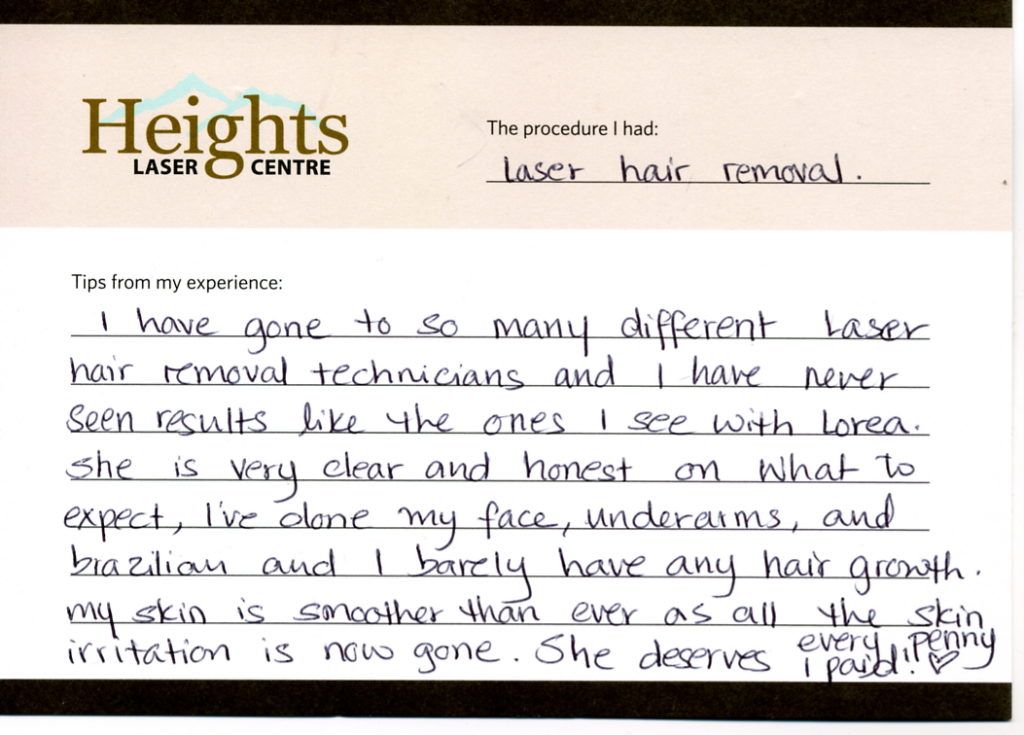 Heights
LASER CENTRE
The procedure I had:
Laser hair removal.
Tips from my experience:
I have gone to so many different Laser
hair removal technicians and I have never
seen results like the ones I see with Lorea.
She is very clear and honest on what to
expect, I've done my face, underarms, and
brazilian and I barely have any hair growth.
my skin is smoother than ever as all the skin
irritation is now gone. She deserves every penny
I paid! ♡